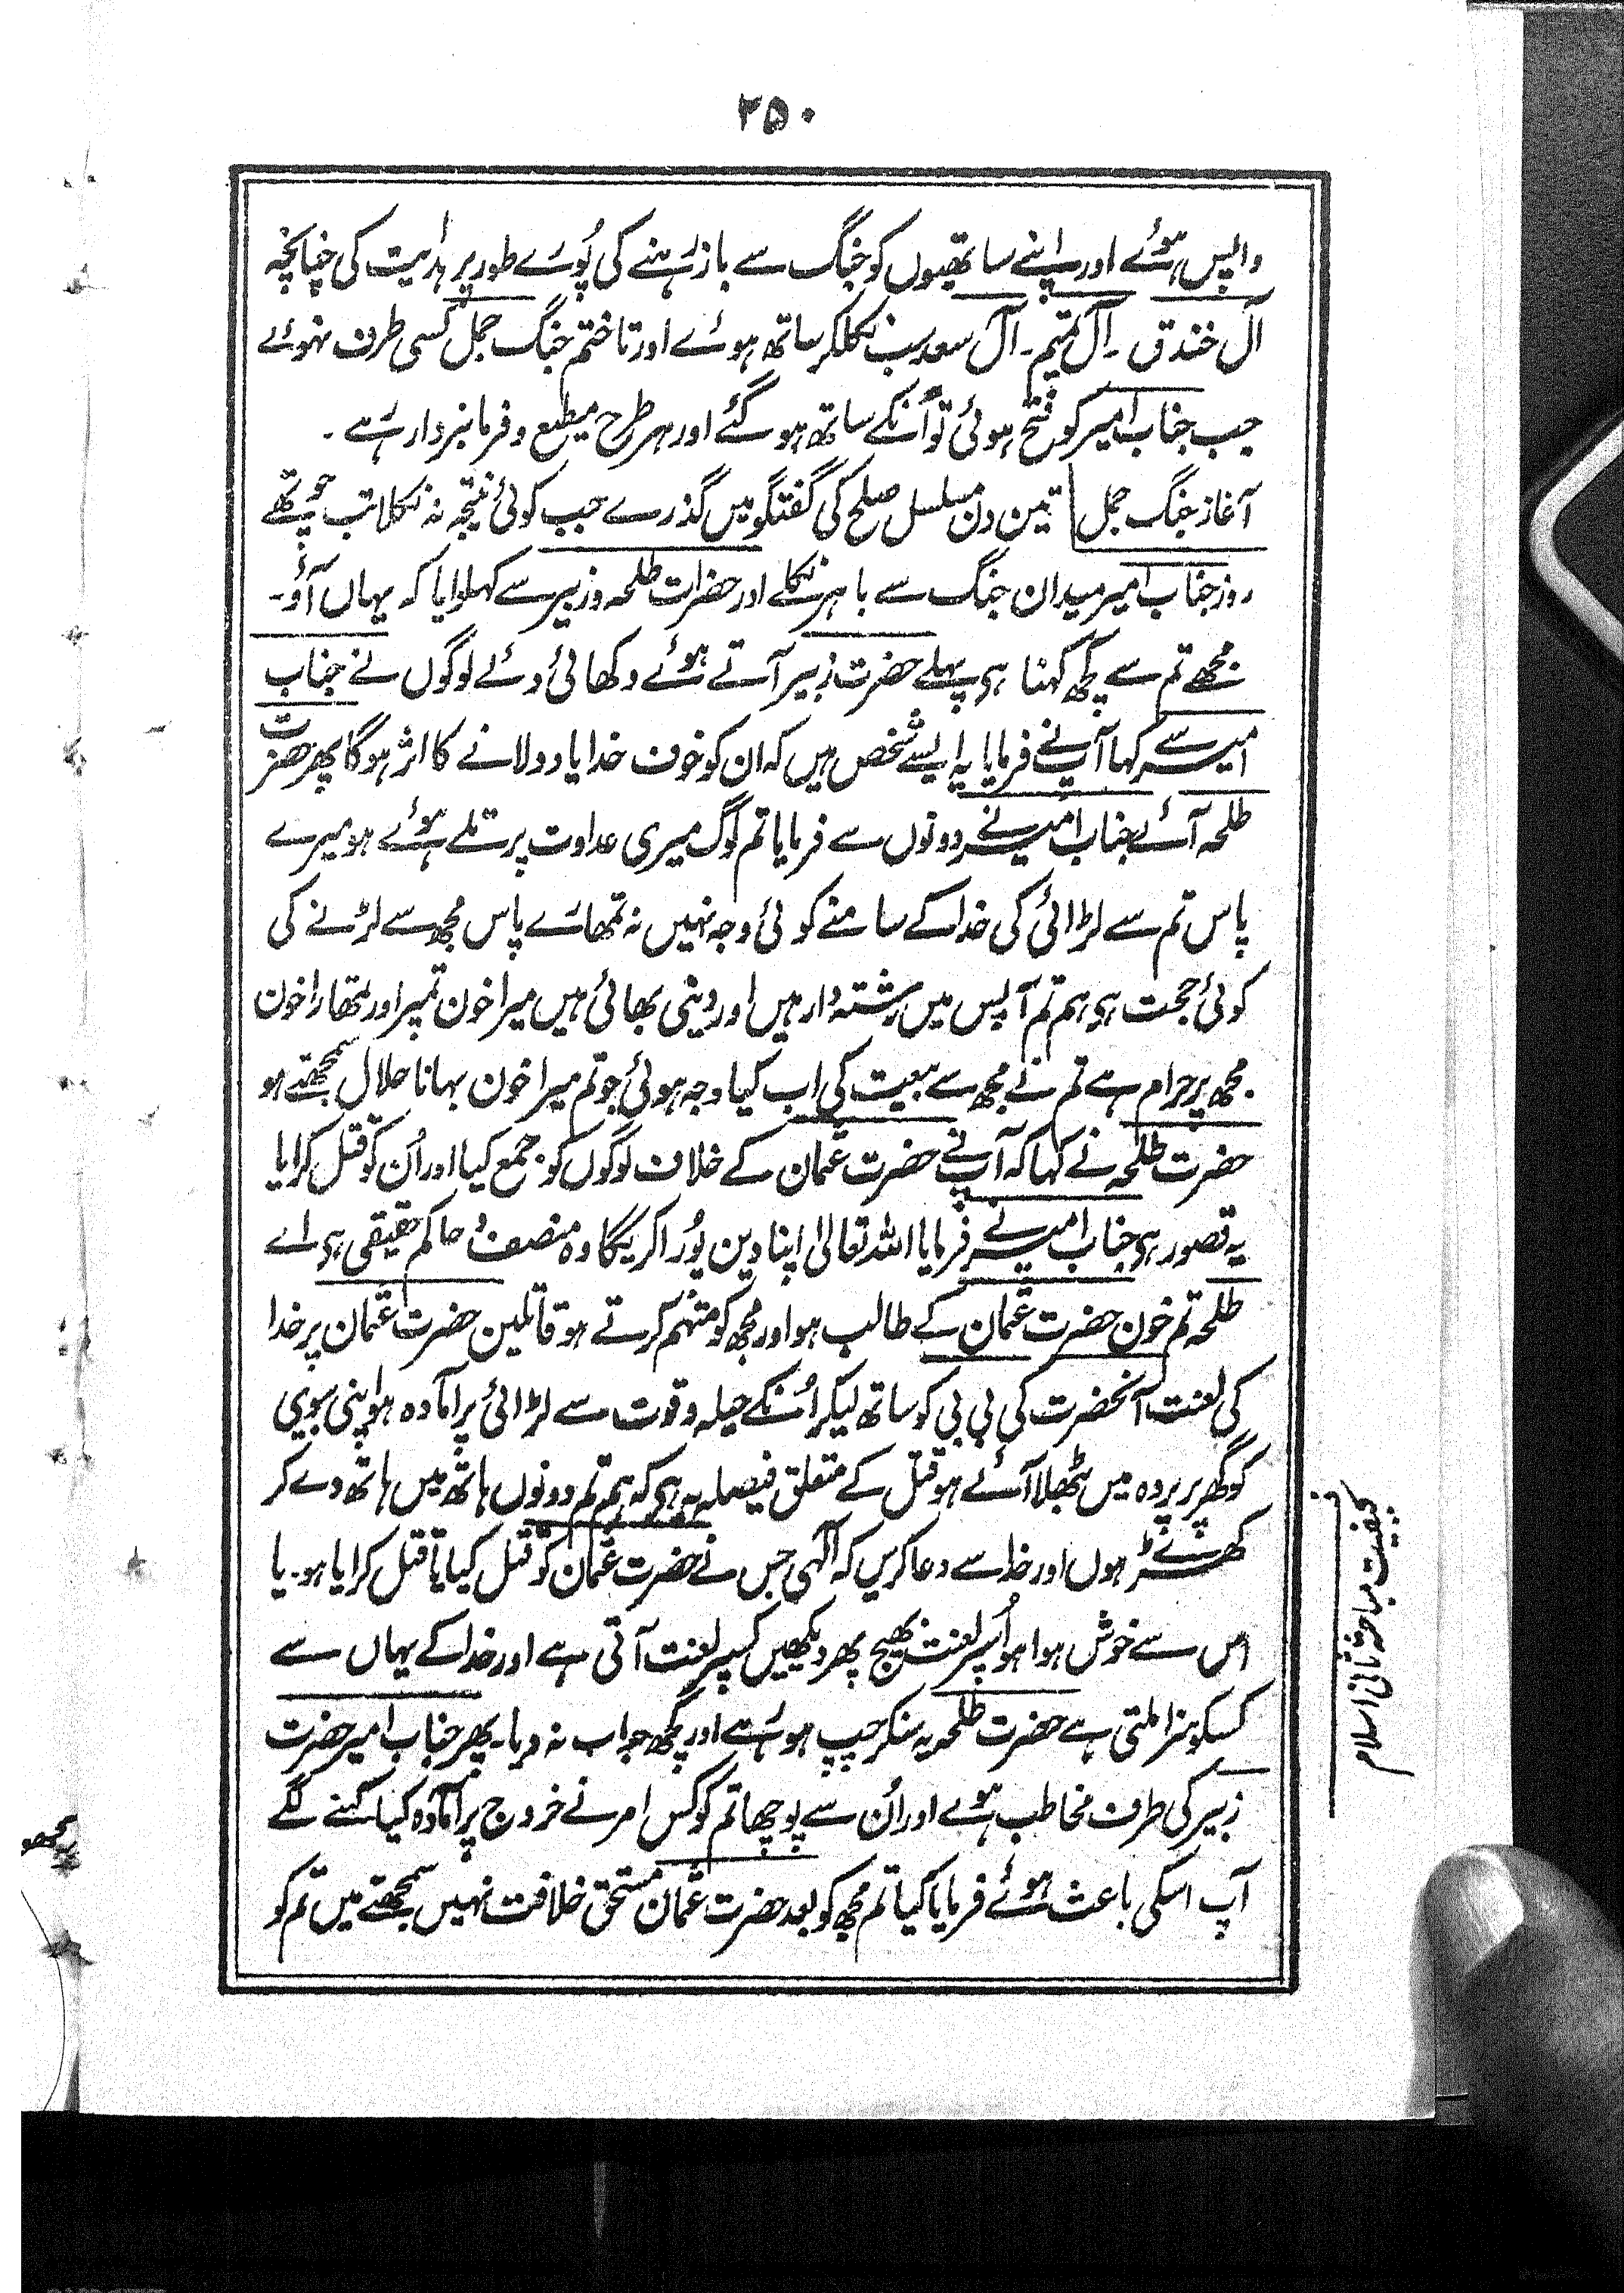 ۲۵۰
واپس ہوئے اور اپنے ساتھیوں کو جنگ سے باز رہنے کی پُورے طور پر ہدایت کی چنانچہ
آل خندق ۔ آل تمیم ۔ آل سعد سب نکلکر ساتھ ہوئے اور تا ختم جنگ جمل کسی طرف نہوئے
جب جناب امیر کو فتح ہوئی تو اُنکے ساتھ ہو گئے اور ہر طرح مطیع و فرمانبردار رہے ۔
آغاز جنگ جمل تین دن مسلسل صلح کی گفتگو میں گذرے جب کوئی نتیجہ نہ نکلا تب چوتھے
روز جناب امیر میدان جنگ سے باہر نکلے اور حضرات طلحہ و زبیر سے کہلوایا کہ یہاں آؤ۔
مجھے تم سے کچھ کہنا ہی پہلے حضرت زبیر آتے ہوئے دکھائی دئے لوگوں نے جناب
امیر سے کہا آپنے فرمایا یہ ایسے شخص ہیں کہ ان کو خوف خدا یاد دلانے کا اثر ہوگا پھر حضرت
طلحہ آئے جناب امیر نے دونوں سے فرمایا تم لوگ میری عداوت پر تلے ہوئے ہو میرے
پاس تم سے لڑائی کی خدا کے سامنے کوئی وجہ نہیں نہ تمہارے پاس مجھ سے لڑنے کی
کوئی حجت ہی ہم تم آپس میں رشتہ دار ہیں اور دینی بھائی ہیں میرا خون تمپر اور تمھارا خون
مجھ پر حرام ہے تم نے مجھ سے بیعت کی اب کیا وجہ ہوئی جو تم میرا خون بہانا حلال سمجھتے ہو
حضرت طلحہ نے کہا کہ آپ نے حضرت عثمان کے خلاف لوگوں کو جمع کیا اور اُن کو قتل کرایا
یہ قصور ہی جناب امیر نے فرمایا اللہ تعالیٰ اپنا دین پُورا کریگا وہ منصف و حاکم حقیقی ہی اے
طلحہ تم خون حضرت عثمان کے طالب ہو اور مجھ کو متہم کرتے ہو قاتلین حضرت عثمان پر خدا
کی لعنت آنحضرت کی بی بی کو ساتھ لیکر اُنکے حیلہ و قوت سے لڑائی پر آمادہ ہو اپنی بیوی
کو گھر پر پردہ میں بٹھلا آئے ہو قتل کے متعلق فیصلہ یہ ہی کہ ہم تم دونوں ہاتھ میں ہاتھ دے کر
کھڑے ہوں اور خدا سے دعا کریں کہ الٰہی جس نے حضرت عثمان کو قتل کیا یا قتل کرایا ہو۔ یا
اس سے خوش ہوا ہو اُسپر لعنت بھیج پھر دیکھیں کسپر لعنت آتی ہے اور خدا کے یہاں سے
کسکو سزا ملتی ہے حضرت طلحہ یہ سنکر چپ ہو رہے اور کچھ جواب نہ دیا۔ پھر جناب امیر حضرت
زبیر کی طرف مخاطب ہوے اور اُن سے پوچھا تم کو کس امر نے خروج پر آمادہ کیا کہنے لگے
آپ اسکی باعث ہوئے فرمایا کیا تم مجھ کو بعد حضرت عثمان مستحق خلافت نہیں سمجھتے میں تم کو
مباحثہ ثانی اسلام